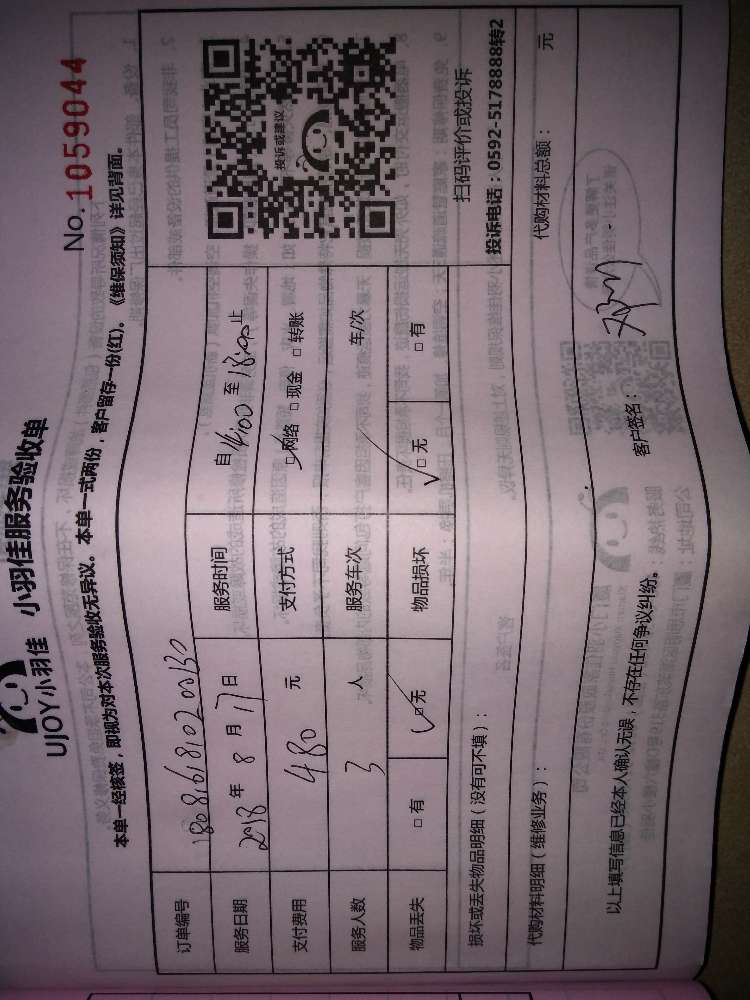 UJOY小羽佳 小羽佳服务验收单
No. 1059044
本单一经核签，即视为对本次服务验收无异议。本单一式两份，客户留存一份(红)。《维保须知》详见背面。
订单编号
服务日期 2018 年 8 月 17 日 服务时间 自 14:00 至 18:00 止
支付费用 480 元 支付方式 ☑网络 □现金 □转账
服务人数 3 人 服务车次 车/次
物品丢失 □有 ☑无 物品损坏 ☑无 □有
投诉或建议
扫码评价或投诉
投诉电话：0592-5178888转2
损坏或丢失物品明细（没有可不填）：
代购材料明细（维修业务）： 代购材料总额： 元
以上填写信息已经本人确认无误，不存在任何争议纠纷。 客户签名：